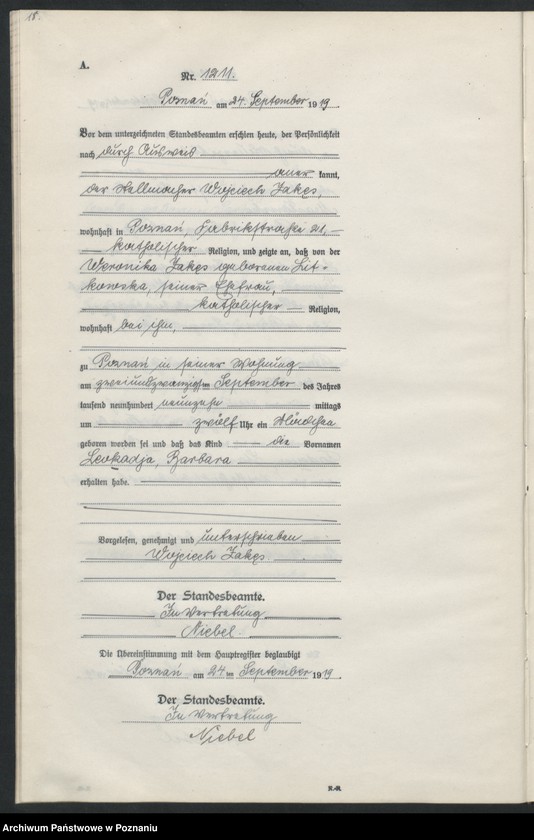 18.
A.
Nr. 1211.
Poznań am 24. September 1919.
Vor dem unterzeichneten Standesbeamten erschien heute, der Persönlichkeit
nach durch Ausweis
aner kannt,
der Stellmacher Wojciech Jakęs,
wohnhaft in Poznań, Fabrikstraße 21,
katholischer Religion, und zeigte an, daß von der
Weronika Jakęs geborenen Lit-
kowska, seiner Ehefrau,
katholischer Religion,
wohnhaft bei ihm,
zu Poznań in seiner Wohnung
am zweiundzwanzigsten September des Jahres
tausend neunhundert neunzehn mittags
um zwölf Uhr ein Mädchen
geboren worden sei und daß das Kind die Vornamen
Leokadja, Barbara
erhalten habe.
Vorgelesen, genehmigt und unterschrieben
Wojciech Jakęs
Der Standesbeamte.
In Vertretung
Niebel.
Die Übereinstimmung mit dem Hauptregister beglaubigt
Poznań am 24ten September 1919.
Der Standesbeamte.
In Vertretung
Niebel
R.-R.
Archiwum Państwowe w Poznaniu